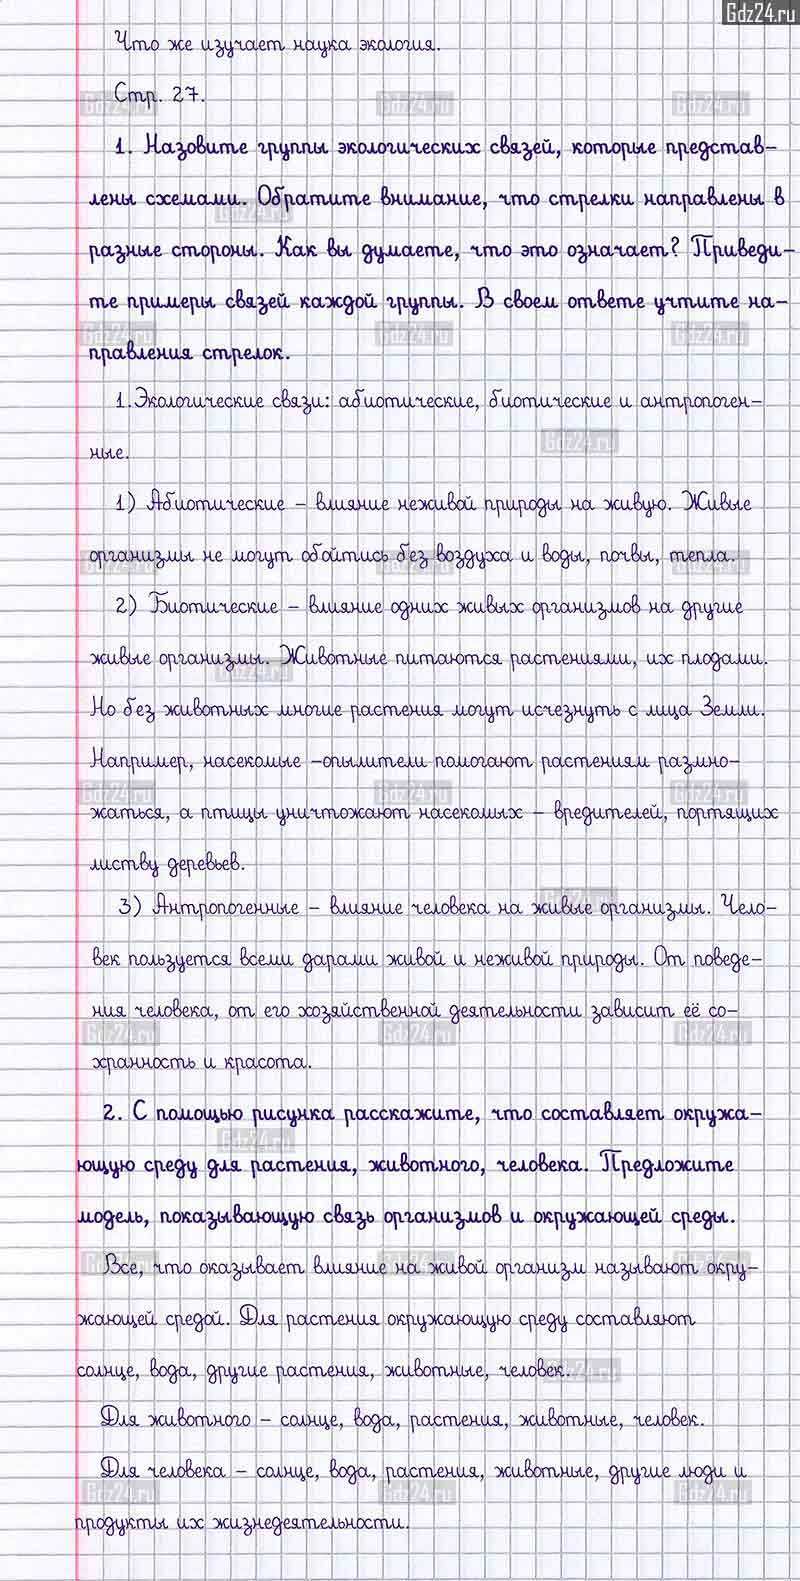 Gdz24.ru
Что же изучает наука экология.
Стр. 27.
1. Назовите группы экологических связей, которые представ-
лены схемами. Обратите внимание, что стрелки направлены в
разные стороны. Как вы думаете, что это означает? Приведи-
те примеры связей каждой группы. В своем ответе учтите на-
правления стрелок.
1.Экологические связи: абиотические, биотические и антропоген-
ные.
1) Абиотические – влияние неживой природы на живую. Живые
организмы не могут обойтись без воздуха и воды, почвы, тепла.
2) Биотические – влияние одних живых организмов на другие
живые организмы. Животные питаются растениями, их плодами.
Но без животных многие растения могут исчезнуть с лица Земли.
Например, насекомые –опылители помогают растениям размно-
жаться, а птицы уничтожают насекомых – вредителей, портящих
листву деревьев.
3) Антропогенные – влияние человека на живые организмы. Чело-
век пользуется всеми дарами живой и неживой природы. От поведе-
ния человека, от его хозяйственной деятельности зависит её со-
хранность и красота.
2. С помощью рисунка расскажите, что составляет окружа-
ющую среду для растения, животного, человека. Предложите
модель, показывающую связь организмов и окружающей среды.
Все, что оказывает влияние на живой организм называют окру-
жающей средой. Для растения окружающую среду составляют
солнце, вода, другие растения, животные, человек.
Для животного – солнце, вода, растения, животные, человек.
Для человека – солнце, вода, растения, животные, другие люди и
продукты их жизнедеятельности.